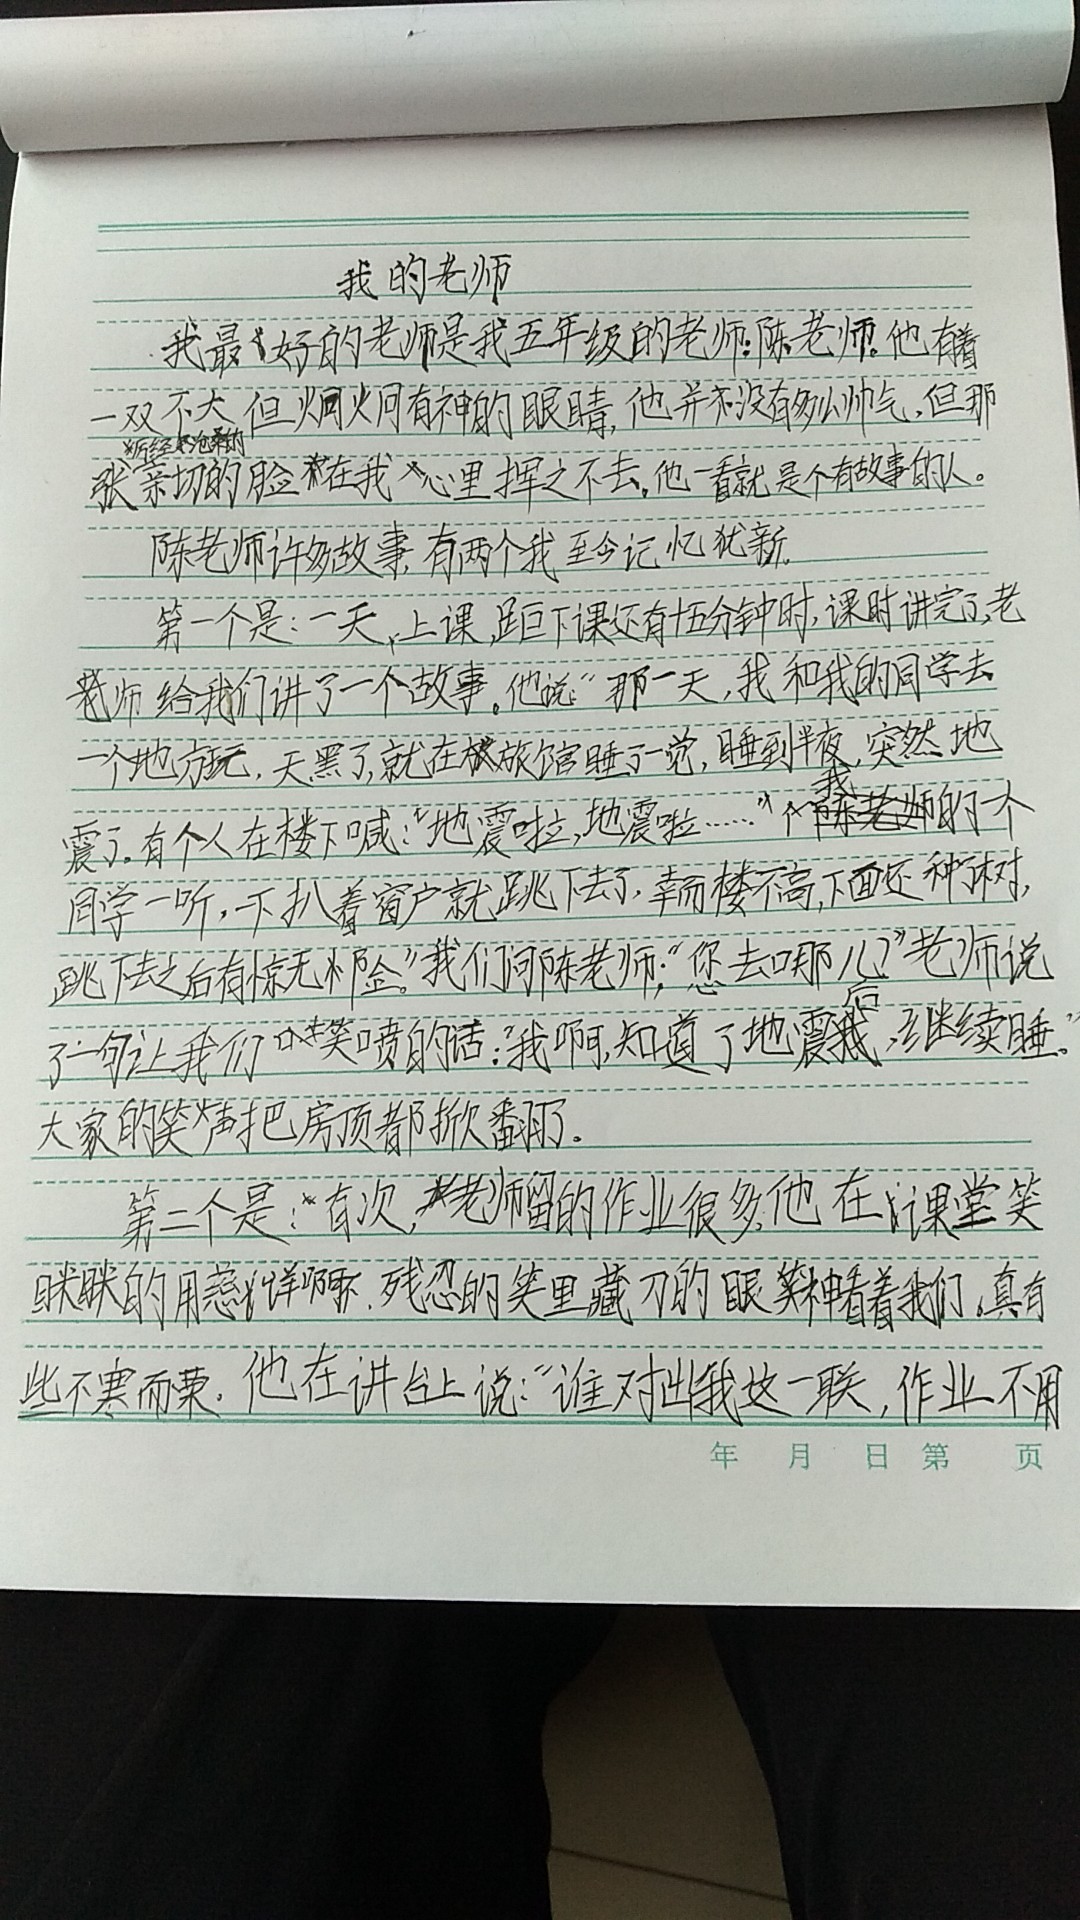 我的老师
我最好的老师是我五年级的老师:陈老师。他有着
一双不大但炯炯有神的眼睛,他并没有多么帅气,但那
饱经沧桑的
张亲切的脸在我心里挥之不去。他一看就是个有故事的人。
陈老师许多故事,有两个我至今记忆犹新。
第一个是:一天,上课,距下课还有十五分钟时,课时讲完了,老
老师给我们讲了一个故事。他说:“那一天,我和我的同学去
一个地方玩,天黑了,就在旅馆睡了一觉,睡到半夜,突然地
我
震了。有个人在楼下喊:“地震啦,地震啦……”的一个
同学一听,一下扒着窗户就跳下去了,幸而楼不高,下面还种了树,
跳下去之后有惊无险。”我们问陈老师:“您去哪儿?”老师说
后
了一句让我们笑喷的话:“我啊,知道了地震,继续睡。”
大家的笑声把房顶都掀翻了。
第二个是:有次,老师留的作业很多,他在课堂笑
眯眯的用慈祥、残忍的笑里藏刀的眼神看着我们,真有
些不寒而栗。他在讲台上说:“谁对出我这一联,作业不用
年 月 日 第 页